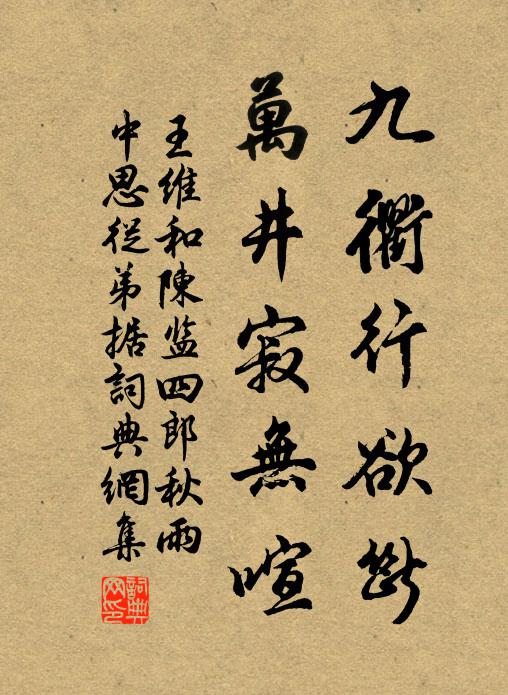 九衢行欲斷
萬井寂無喧
王維和陳監四郎秋雨
中思從弟据詞典網集
詞典网印